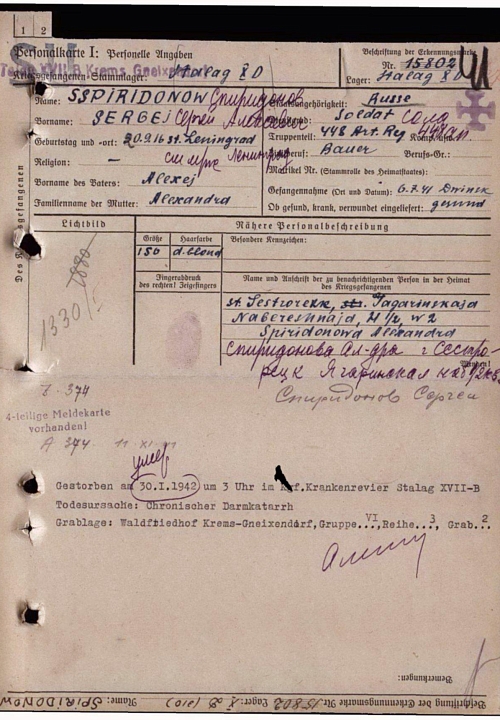 1 2
Personalkarte I: Personelle Angaben
Beschriftung der Erkennungsmarke
Nr. 15802
Kriegsgefangenen-Stammlager: Stalag X D
Lager: Stalag X D
Stalag XVII B Krems Gneixendorf
Des Kriegsgefangenen
Name: SSPIRIDONOW Спиридонов
Staatsangehörigkeit: Russe
Vorname: SERGEJ Сергей Алексеевич
Dienstgrad: Soldat солд
Geburtstag und -ort: 20.9.16 st. Leningrad
Truppenteil: 448 Art. Reg Komp. usw.: 448 ап
Religion: –
Zivilberuf: Bauer Berufs-Gr.:
Matrikel Nr. (Stammrolle des Heimatstaates)
Vorname des Vaters: Alexej
Gefangennahme (Ort und Datum): 6.7.41
Familienname der Mutter: Alexandra
Ob gesund, krank, verwundet eingeliefert: gesund
Lichtbild
Nähere Personalbeschreibung
Größe Haarfarbe Besondere Kennzeichen:
150 d. blond
Fingerabdruck
des rechten! Zeigefingers
Name und Anschrift der zu benachrichtigenden Person in der Heimat
des Kriegsgefangenen
st. Sestrorezk, Jagarinskaja
Nabereshnaja, H 1/2, w 2
Spiridonowa Alexandra
Спиридонова Ал-дра г. Сестро-
рецк Ягаринская наб
Спиридонов Сергей
1330/
374
4-teilige Meldekarte
vorhanden!
A 374 11 XI 41
умер
Gestorben am 30.I.1942 um 3 Uhr im Krf.Krankenrevier Stalag XVII-B
Todesursache: Chronischer Darmkatarrh
Grablage: Waldfriedhof Krems-Gneixendorf, Gruppe VI, Reihe 3, Grab 2
Bemerkungen:
Beschriftung der Erkennungsmarke Nr. 15802 Lager: X D (310) Name: SPIRIDONOW